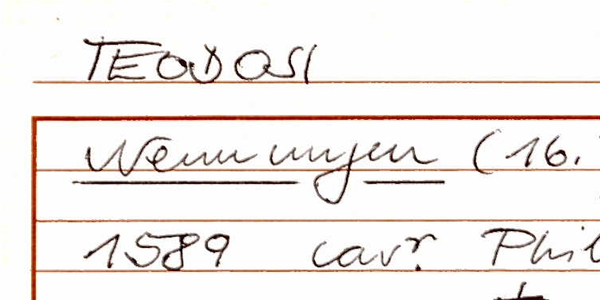 TEODOSI
Wenningen (16.
1589 cavr. Phil